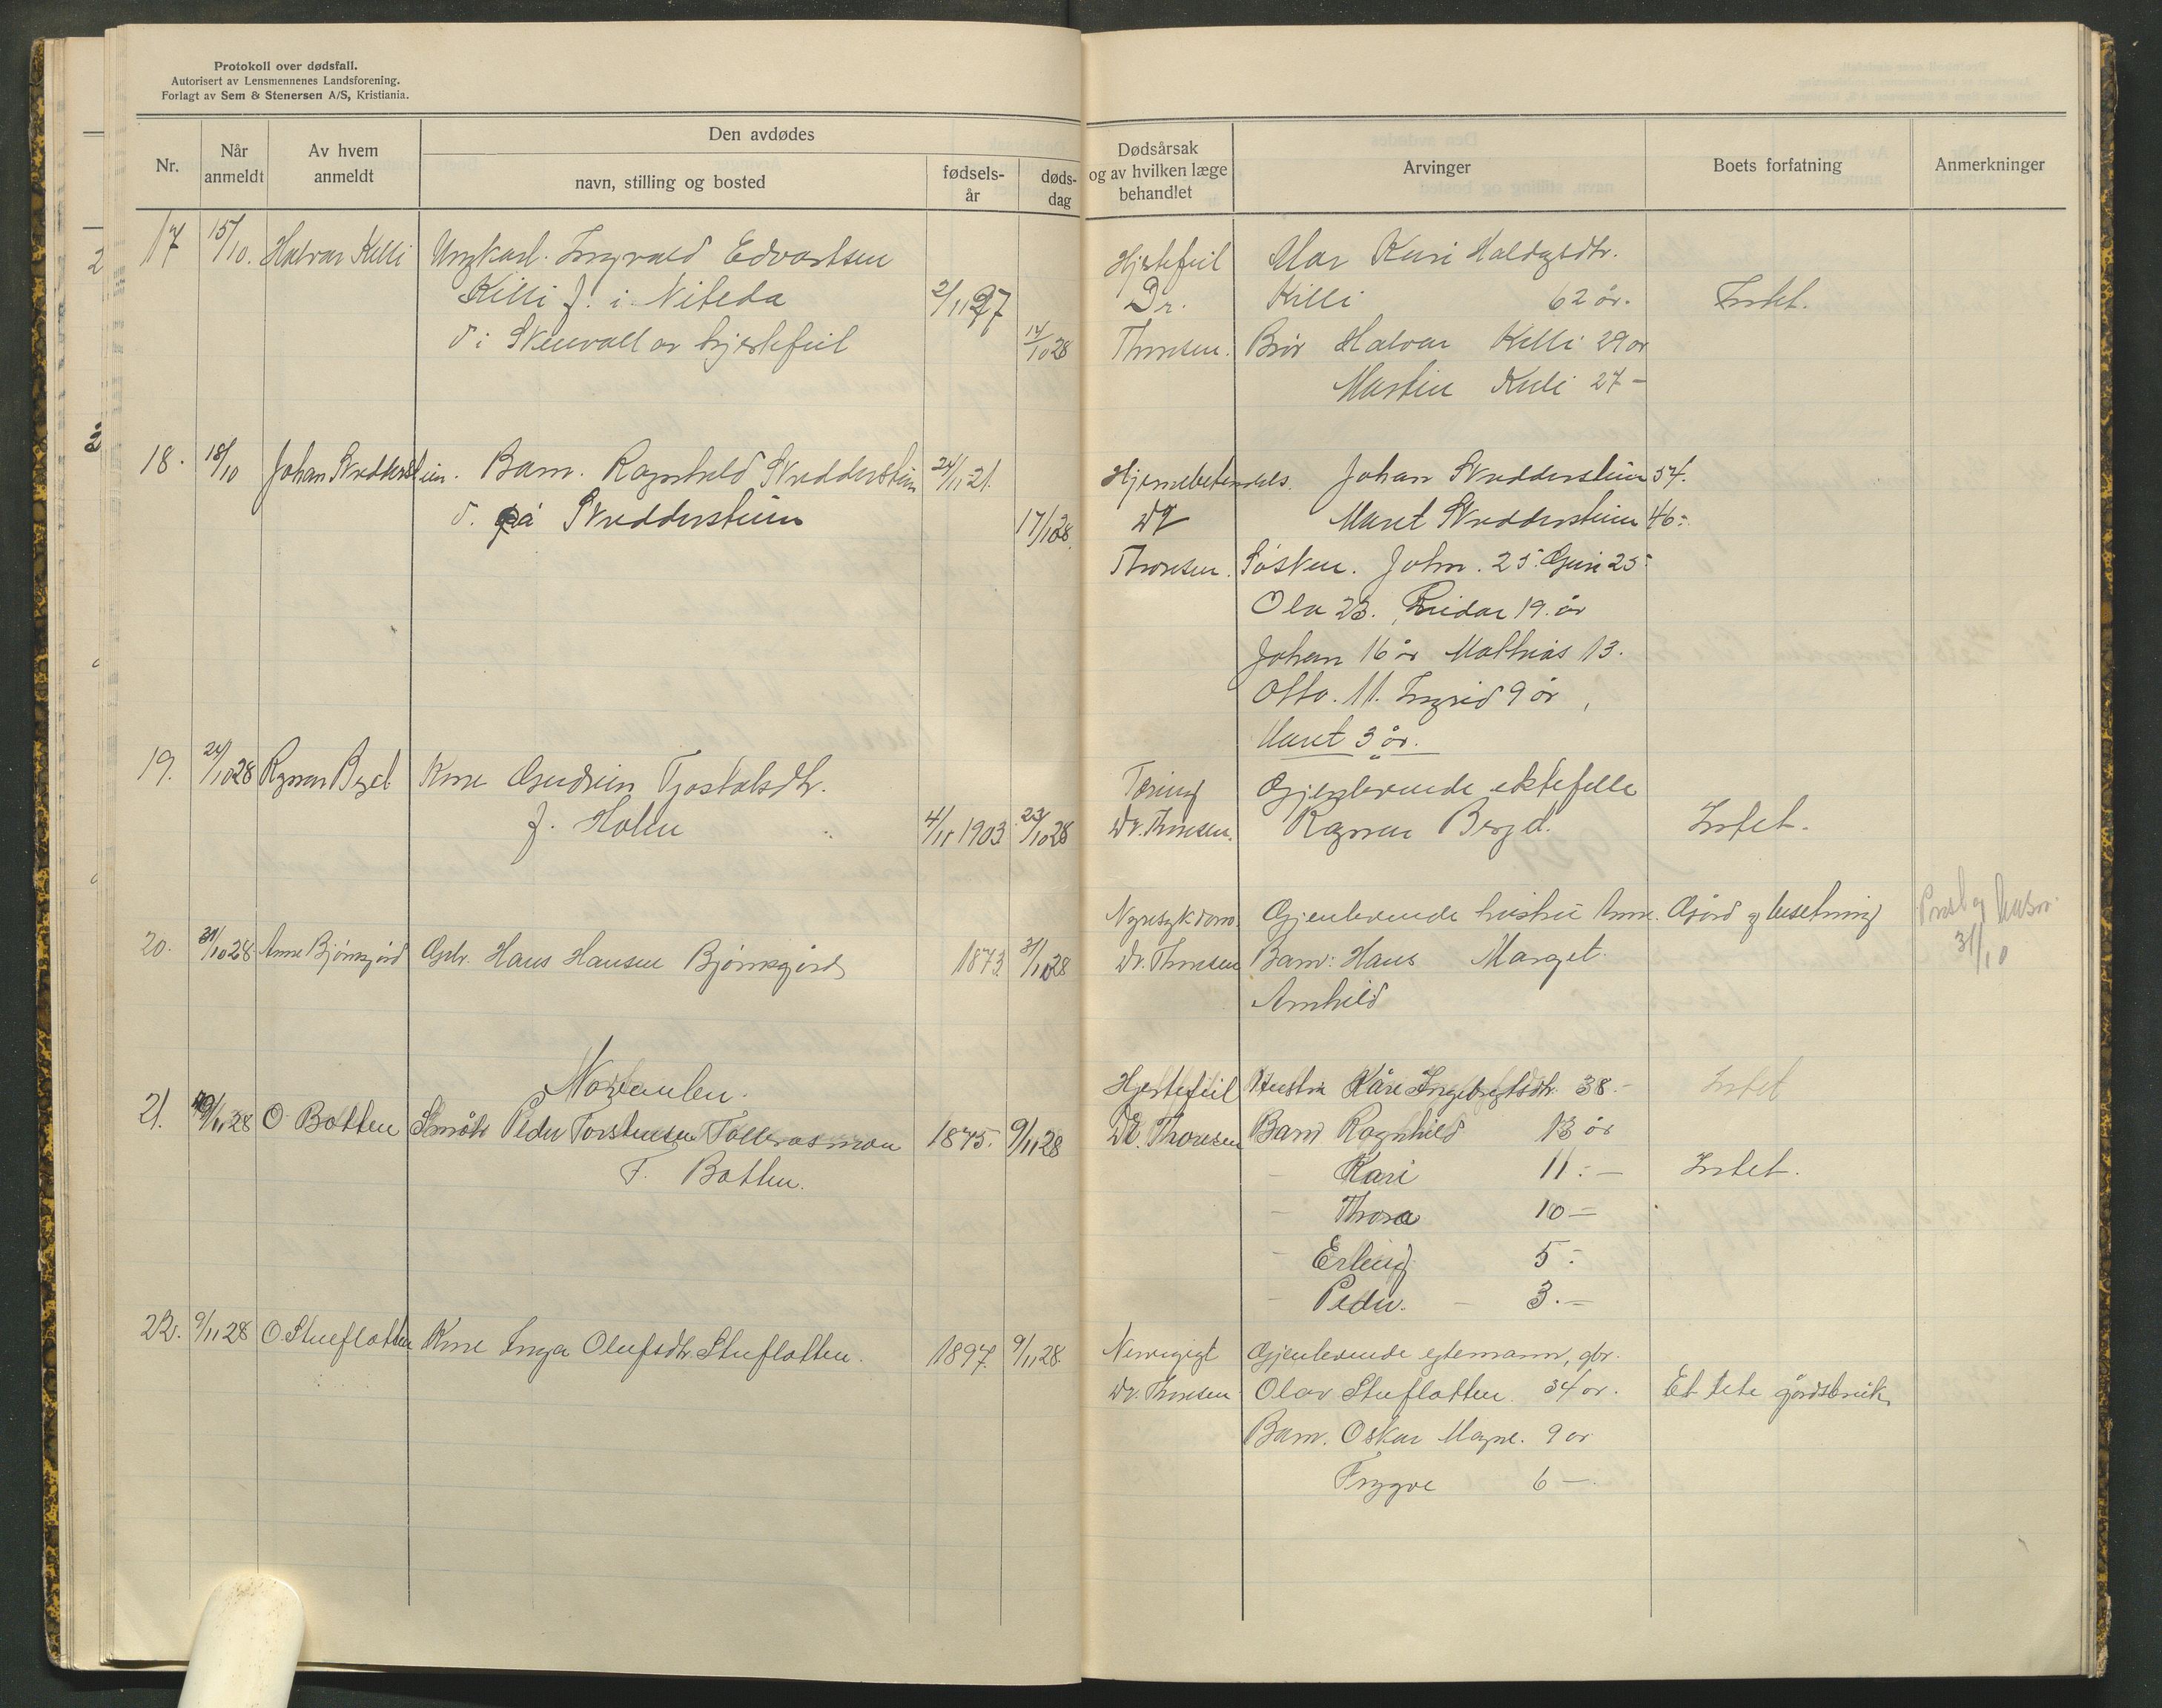 Protokoll over dødsfall.
Autorisert av Lensmennenes Landsforening.
Forlagt av Sem & Stenersen A/S, Kristiania.
Nr.
Når anmeldt
Av hvem anmeldt
Den avdødes
navn, stilling og bosted
fødsels-år
døds-dag
Dødsårsak og av hvilken læge behandlet
Arvinger
Boets forfatning
Anmerkninger
17 15/10. Halvar Killi Ungkarl. Ingvald Edvartsen
Killi f. i Niteda 2/11 97
d i Skeuvall av hjertefeil 14/10 28
Hjertefeil Mor Kari
Dr. Killi 62 år. Intet.
Thoresen. Bror Halvar Killi 29 år
Martin Killi 27 –
18. 18/10 Johan Skredderstuen. Barn. Ragnhild Skredderstuen 24/11-21.
d. på Skredderstuen 17/10 28.
Hjernebetendels. Johan Skredderstuen 54.
Dr Maret Skredderstuen 46.
Thoresen. Søsken. John. 25. Guri 25.
Ola 23. Reidar 19. år
Johan 16 år Mathias 13.
Otto. 11. Ingrid 9 år,
Maret 3 år.
19. 24/10 28 Ragnar Kone Gudrun Tjostolsdtr.
f. Holen 4/11 1903 23/10 28
Tæring Gjenlevende ektefelle
Dr. Thoresen. Ragnar Intet.
20. 31/10 28. Anne Bjørnsgård Gbr. Hans Hansen Bjørnsgård 1873 31/10 28
Nyresykdom. Gjenlevende hustru Anne. Gård og besetning
Dr. Thoresen Barn: Hans Marget.
Arnhild
31/10
November.
21. 9/11 28 O Botten Småbr Peder Torstensen Tollevasmoen 1875. 9/11 28
F. Botten.
Hjertefeil Hustru Kåre Ingebrigtsdtr. 38.– Intet
Dr. Thoresen Barn Ragnhild 13 år
– Kari 11 :– Intet.
– Thora 10 –
– Erling 5 –
– Peder. – 3.–
22. 9/11 28 O. Stueflotten Kone Inga Olufsdtr Stueflotten. 1897. 9/11 28.
Gjenlevende egtemann, gbr.
Dr. Thoresen Olav Stueflotten. 34 år. Et lite gårdsbruk
Barn. Oskar Magne. 9 år
Trygve 6 –.